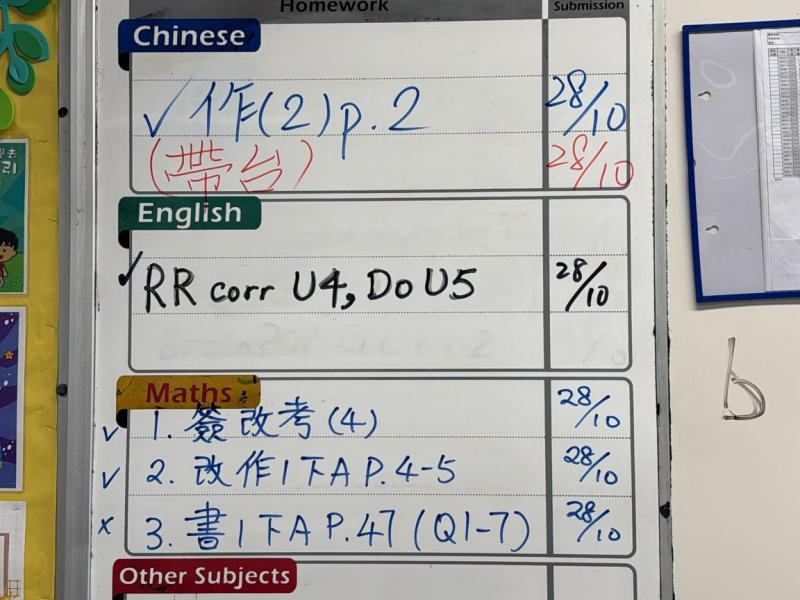 Homework
Submission
Chinese
✓ 作(2) p.2 28/10
(帶台) 28/10
English
✓ RR corr U4, Do U5 28/10
Maths
✓ 1. 簽改考(4) 28/10
✓ 2. 改作1下A P.4-5 28/10
x 3. 書1下A P.47 (Q1-7) 28/10
Other Subjects
b